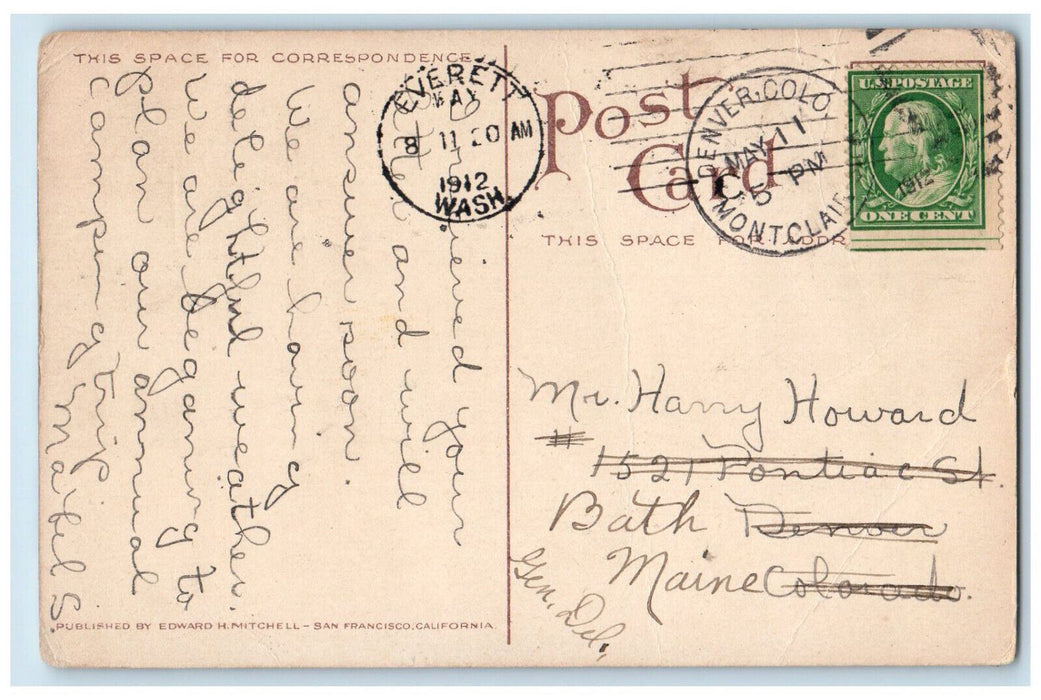 THIS SPACE FOR CORRESPONDENCE
Received your
letter and will
answer soon.
We are having
delightful weather.
We are beganing to
plan our annual
camping trip
Mabel S.
PUBLISHED BY EDWARD H. MITCHELL – SAN FRANCISCO, CALIFORNIA.
EVERETT
MAY
8 11 20 AM
1912
WASH.
Post Card
THIS SPACE FOR ADDR
DENVER, COLO
MAY 11
5 PM
MONTCLAIR
1912
U.S. POSTAGE
ONE CENT
Mr. Harry Howard
# 1521 Pontiac St.
Bath Denver
Maine Colorado.
Gen. Del.